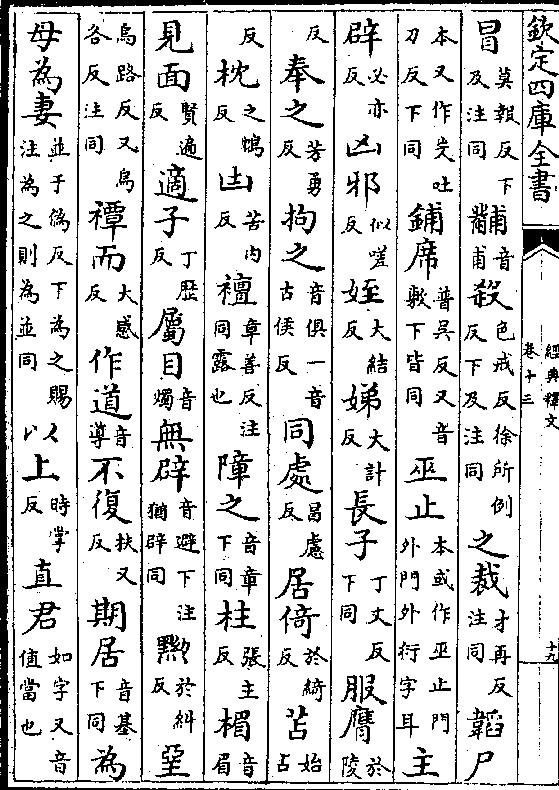 欽定四庫全書
經典釋文
卷十三
十九
冒莫報反下及注同黼音甫殺色戒反徐所例反下及注同之裁才再反注同韜尸
本又作弢吐刀反下同鋪席普吳反又音敷下皆同巫止本或作巫止門外門外衍字耳主
辟必亦反凶邪似嗟反姪大結反娣大計反長子丁丈反下同服膺於陵
反奉之芳勇反拘之音俱一音古侯反同處昌慮反居倚於綺反苫始占
反枕之鴆反凷苦内反襢章善反注同露也障之音章下同柱張主反楣音眉
見面賢遍反適子丁歷反屬目音燭無辟音避下注猶辟同黝於糾反堊
烏路反又烏各反注同禫而大感反作道音導不復扶又反期居音基下同為
母為妻並于偽反下為之賜注為之則為並同以上時掌反直君如字又音值當也